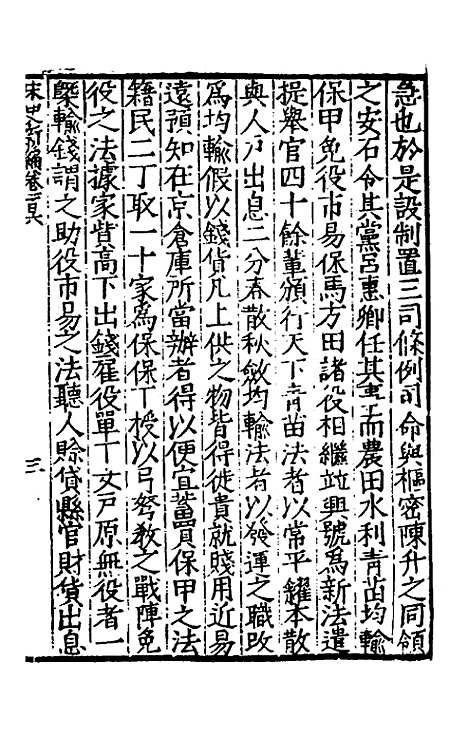 急也於是設制置三司條例司命與樞密陳升之同領
之安石令其黨呂惠卿任其事而農田水利青苗均輸
保甲免役市易保馬方田諸役相繼並興號為新法遣
提舉官四十餘輩頒行天下青苗法者以常平糴本散
與人戶出息二分春散秋斂均輸法者以發運之職改
為均輸假以錢貨凡上供之物皆得徙貴就賤用近易
遠預知在京倉庫所當辦者得以便宜蓄買保甲之法
籍民二丁取一十家為保保丁授以弓弩教之戰陣免
役之法據家貲高下出錢雇役單丁女戶原無役者一
槩輸錢謂之助役市易之法聽人賒貸縣官財貨出息
宋史新編卷
三